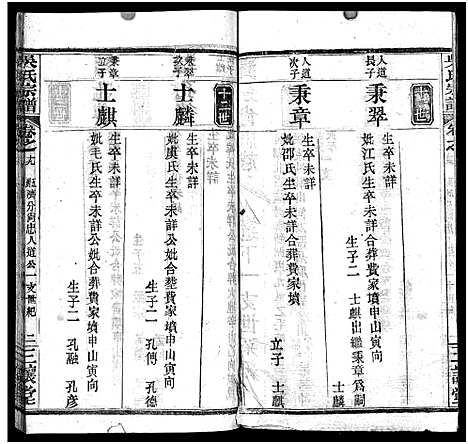 吳氏宗譜
十一世
人道
長子
秉翠
生卒未詳
妣江氏生卒未詳合葬費家墳申山寅向
生子二 士麒出繼秉章為嗣
人道
次子
秉章
生卒未詳
妣邵氏生卒未詳合葬費家墳
立子 士麒
十二世
秉翠
次子
士麟
生卒未詳
妣虞氏生卒未詳公妣合塟費家墳申山寅向
生子二 孔傳 孔德
秉章
立子
士麒
生卒未詳
妣毛氏生卒未詳公妣合葬費家墳申山寅向
生子二 孔融 孔彥
吳氏宗譜
卷之九
經濟分尚忠人道公一支世紀
三讓堂